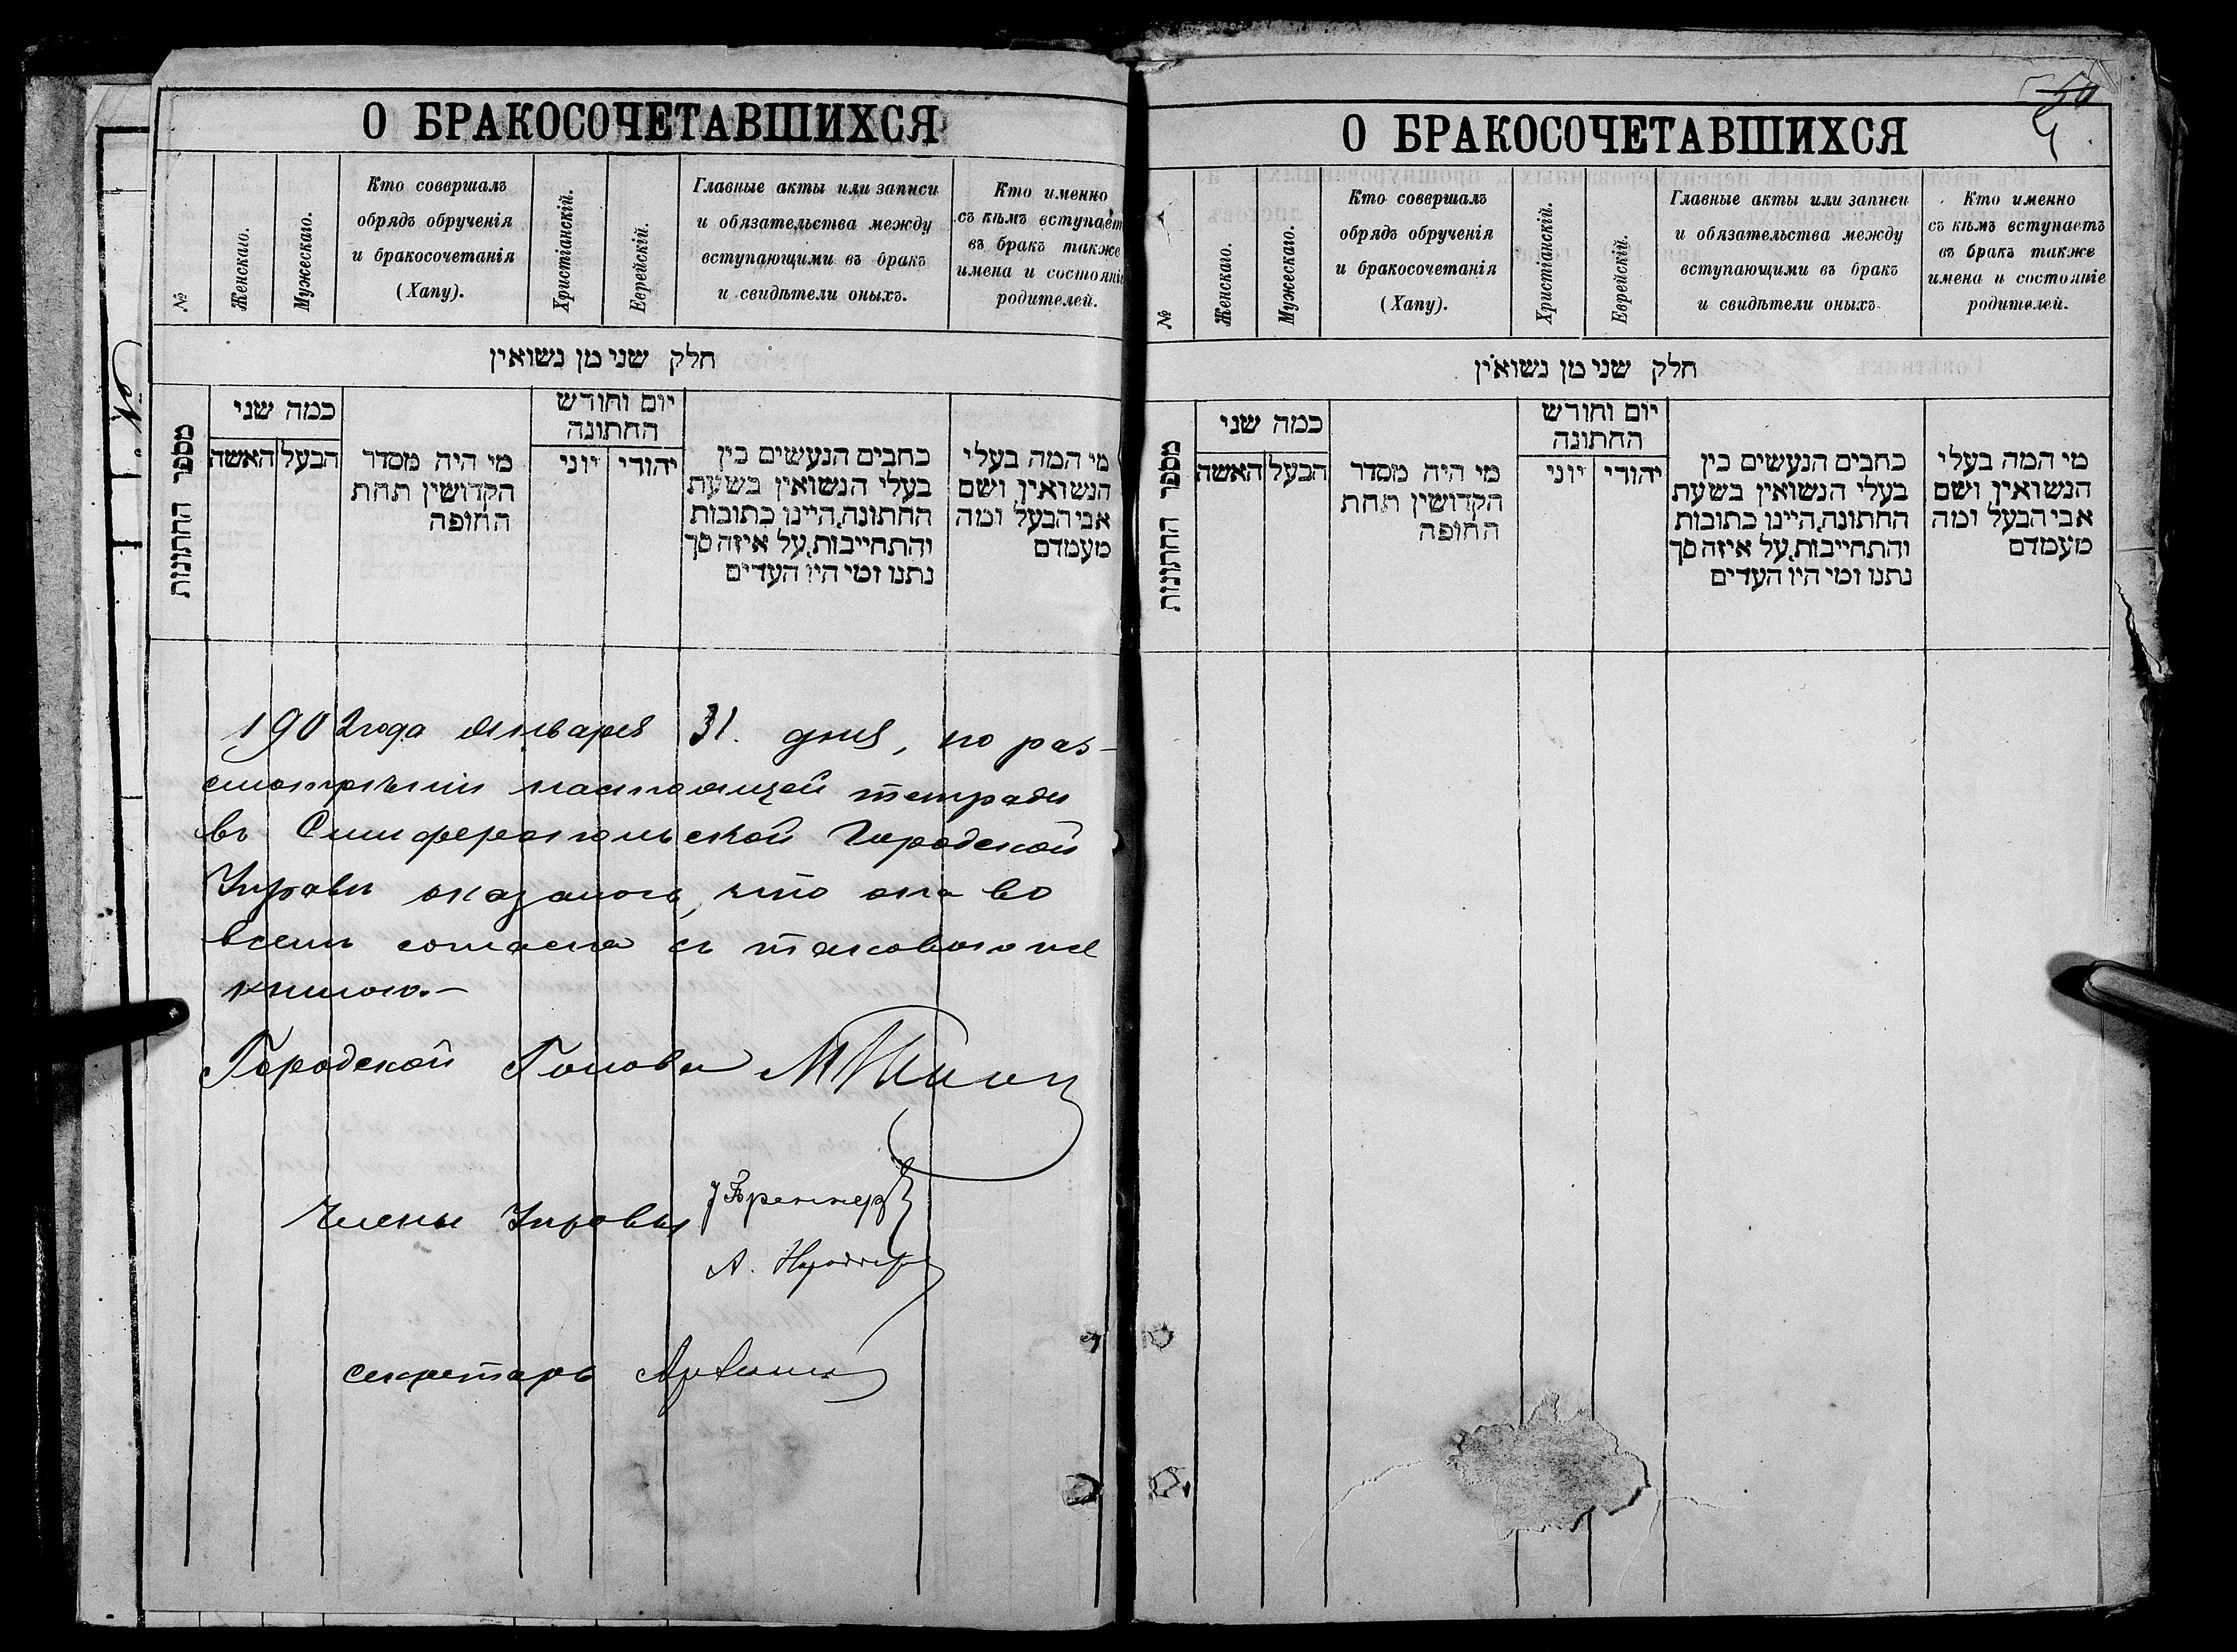 О БРАКОСОЧЕТАВШИХСЯ
№
Женскаго.
Мужескаго.
Кто совершалъ
обрядъ обрученія
и бракосочетанія
(Хапу).
Христіанскій.
Еврейскій.
Главные акты или записи
и обязательства между
вступающими въ бракъ
и свидѣтели оныхъ.
Кто именно
съ кѣмъ вступаетъ
въ бракъ также
имена и состояніе
родителей.
חלק שני מן נשואין
מספר החתונות
כמה שני
הבעל האשה
מי היה מסדר
הקדושין תחת
החופה
יום וחודש
החתונה
יהודי יוני
כתבים הנעשים בין
בעלי הנשואין בשעת
החתונה, היינו כתובות
והתחייבות, על איזה סך
נתנו ומי היו העדים
מי המה בעלי
הנשואין, ושם
אבי הבעל ומה
מעמדם
1902 года Января 31. дня, по раз-
смотрѣніи настоящей тетради
въ Симферопольской Городской
Управѣ оказалось, что она во
всемъ согласна съ таковою же
книгою.—
Городской Голова
Члены Управы
Секретарь
О БРАКОСОЧЕТАВШИХСЯ
50
№
Женскаго.
Мужескаго.
Кто совершалъ
обрядъ обрученія
и бракосочетанія
(Хапу).
Христіанскій.
Еврейскій.
Главные акты или записи
и обязательства между
вступающими въ бракъ
и свидѣтели оныхъ.
Кто именно
съ кѣмъ вступаетъ
въ бракъ также
имена и состояніе
родителей.
חלק שני מן נשואין
מספר החתונות
כמה שני
הבעל האשה
מי היה מסדר
הקדושין תחת
החופה
יום וחודש
החתונה
יהודי יוני
כתבים הנעשים בין
בעלי הנשואין בשעת
החתונה, היינו כתובות
והתחייבות, על איזה סך
נתנו ומי היו העדים
מי המה בעלי
הנשואין, ושם
אבי הבעל ומה
מעמדם